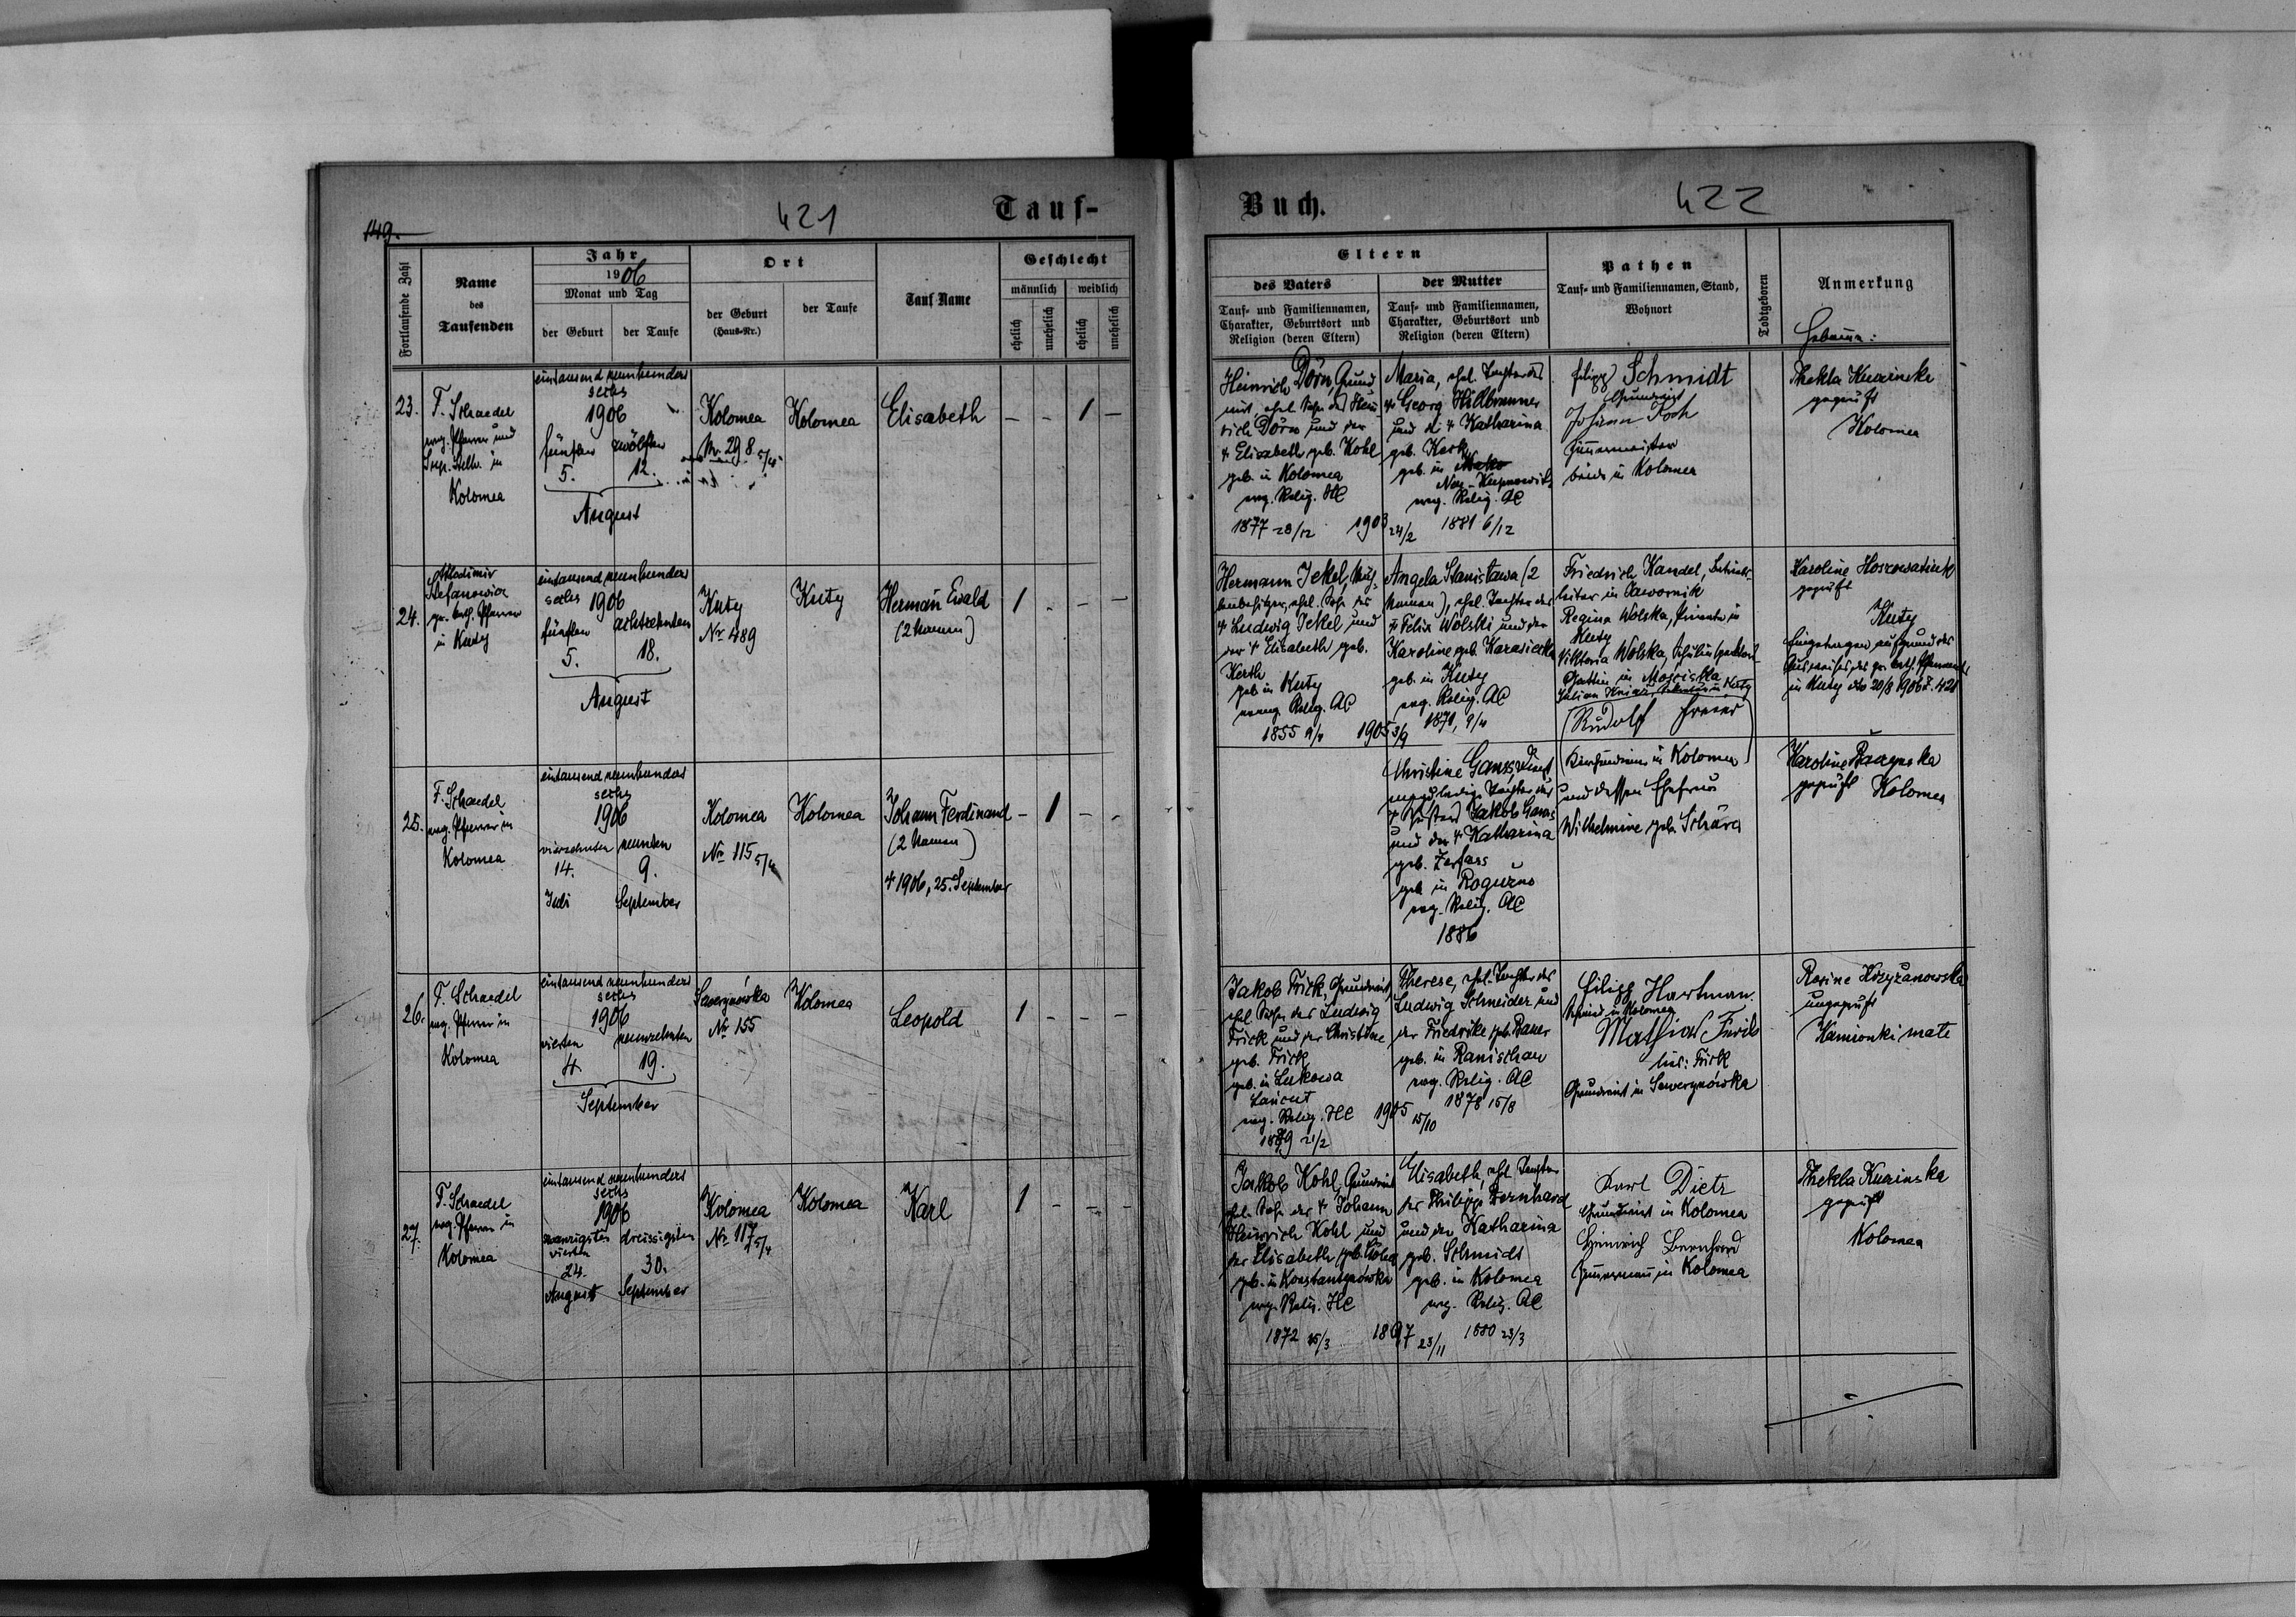 149.
421
Tauf-
Fortlaufende Zahl
Name
des
Taufenden
Jahr
1906
Monat und Tag
der Geburt
der Taufe
Ort
der Geburt
(Haus-Nr.)
der Taufe
Tauf-Name
Geschlecht
männlich
weiblich
ehelich
unehelich
ehelich
unehelich
23.
F. Schaedel
evg. Pfarrer und
Sup. Stellv. in
Kolomea
eintausend neunhundert
sechs
1906
fünften
5.
zwölften
12.
August
Kolomea
Nr. 298 5/4
Kolomea
Elisabeth
– – 1 –
24.
Wladimir
Stefanowicz
gr. kath. Pfarrer
in Kuty
eintausend neunhundert
sechs 1906
fünften
5.
achtzehnten
18.
August
Kuty
Nr 489
Kuty
Hermañ Ewald
(2 Namen)
1 – – –
25.
F. Schaedel
evg. Pfarrer in
Kolomea
eintausend neunhundert
sechs
1906
vierzehnten
14.
Juli
neunten
9.
September
Kolomea
Nr 115 5/4
Kolomea
Johann Ferdinand
(2 Namen)
† 1906, 25. September
– 1 – –
26.
F. Schaedel
evg. Pfarrer in
Kolomea
eintausend neunhundert
sechs
1906
vierten
4.
neunzehnten
19.
September
Sewerynówka
Nr 155
Kolomea
Leopold
1 – – –
27.
F. Schaedel
evg. Pfarrer in
Kolomea
eintausend neunhundert
sechs
1906
zwanzigsten
vierten
24.
August
dreissigsten
30.
September
Kolomea
Nr 117 5/4
Kolomea
Karl
1 – – –
Buch.
422
Eltern
des Vaters
Tauf- und Familiennamen,
Charakter, Geburtsort und
Religion (deren Eltern)
der Mutter
Tauf- und Familiennamen,
Charakter, Geburtsort und
Religion (deren Eltern)
Pathen
Tauf- und Familiennamen, Stand,
Wohnort
Todtgeboren
Anmerkung
Hebamme:
Heinrich Dörn, Grund
wirt, ehel. Sohn des Hein
rich Dörn und der
† Elisabeth geb. Kohl
geb. in Kolomea
evg. Relig. HC
1877 28/12
1903 24/2
Maria, ehel. Tochter des
† Georg Hillbrunner
und d. † Katharina
geb. Kork
geb. in
evg. Relig. AC
1881 6/12
Filipp Schmidt
Grundwirt
Johann Koch
Zimmermeister
beide in Kolomea
Thekla Kuzinska
geprüft
Kolomea
Hermann Jekel, Müh-
lenbesitzer, ehel. Sohn des
† Ludwig Jekel und
der † Elisabeth, geb.
Kerth
geb. in Kuty
evang. Relig. AC
1855 9/4
1905 3/9
Angela Stanisława (2
Namen), ehel. Tochter des
† Felix Wolski und der
Karoline geb. Karasiecka
geb. in Kuty
evg. Relig. AC
1871, 9/4
Friedrich Kandel,
leiter in Jawornik
Regina Wolska, Private in
Kuty
Viktoria Wolska, Schulinspektors
Gattin in Mościska
(Rudolf Freier)
Karoline Hoszowatiuk
geprüft
Kuty
Eingetragen aufgrund des
Ausweises des gr. kath. Pfarramts
in Kuty dto 20/8 1906 Z. 421
Christine Ganss, Dienst
magd, ledige Tochter des
† Jakob Ganss
und der † Katharina
geb. Zerfass
geb. in Rogużno
evg. Relig. AC
1886
Kirchendiener in Kolomea
und dessen Ehefrau
Wilhelmine geb. Schära
Karoline Baczynska
geprüft Kolomea
Jakob Frick, Grundwirt,
ehel. Sohn des Ludwig
Frick und der Christine
geb. Frick
geb. in Lukowa
Łańcut
evg. Relig. HC
1879 21/2
1905 15/10
Therese, ehel. Tochter des
Ludwig Schneider und
der Friedrike geb. Bauer
geb. in Ranischau
evg. Relig. AC
1878 15/8
Filipp Hartman.
Schmied in Kolomea
Mathias Frick
lies: Frick
Grundwirt in Sewerynówka
Rosine Krzyżanowska
ungeprüft
Kamionki małe
Jakob Kohl, Grundwirt
ehel. Sohn des † Johann
Heinrich Kohl und
der Elisabeth geb.
geb. in Konstantynówka
evg. Relig. HC
1872 25/3
1897 23/11
Elisabeth, ehel. Tochter
des Philipp Bernhard
und der Katharina
geb. Schmidt
geb. in Kolomea
evg. Relig. AC
1880 23/3
Karl Dietz
Grundwirt in Kolomea
Heinrich Bernhard
Zimmermann in Kolomea
Thekla Kuzinska
geprüft
Kolomea